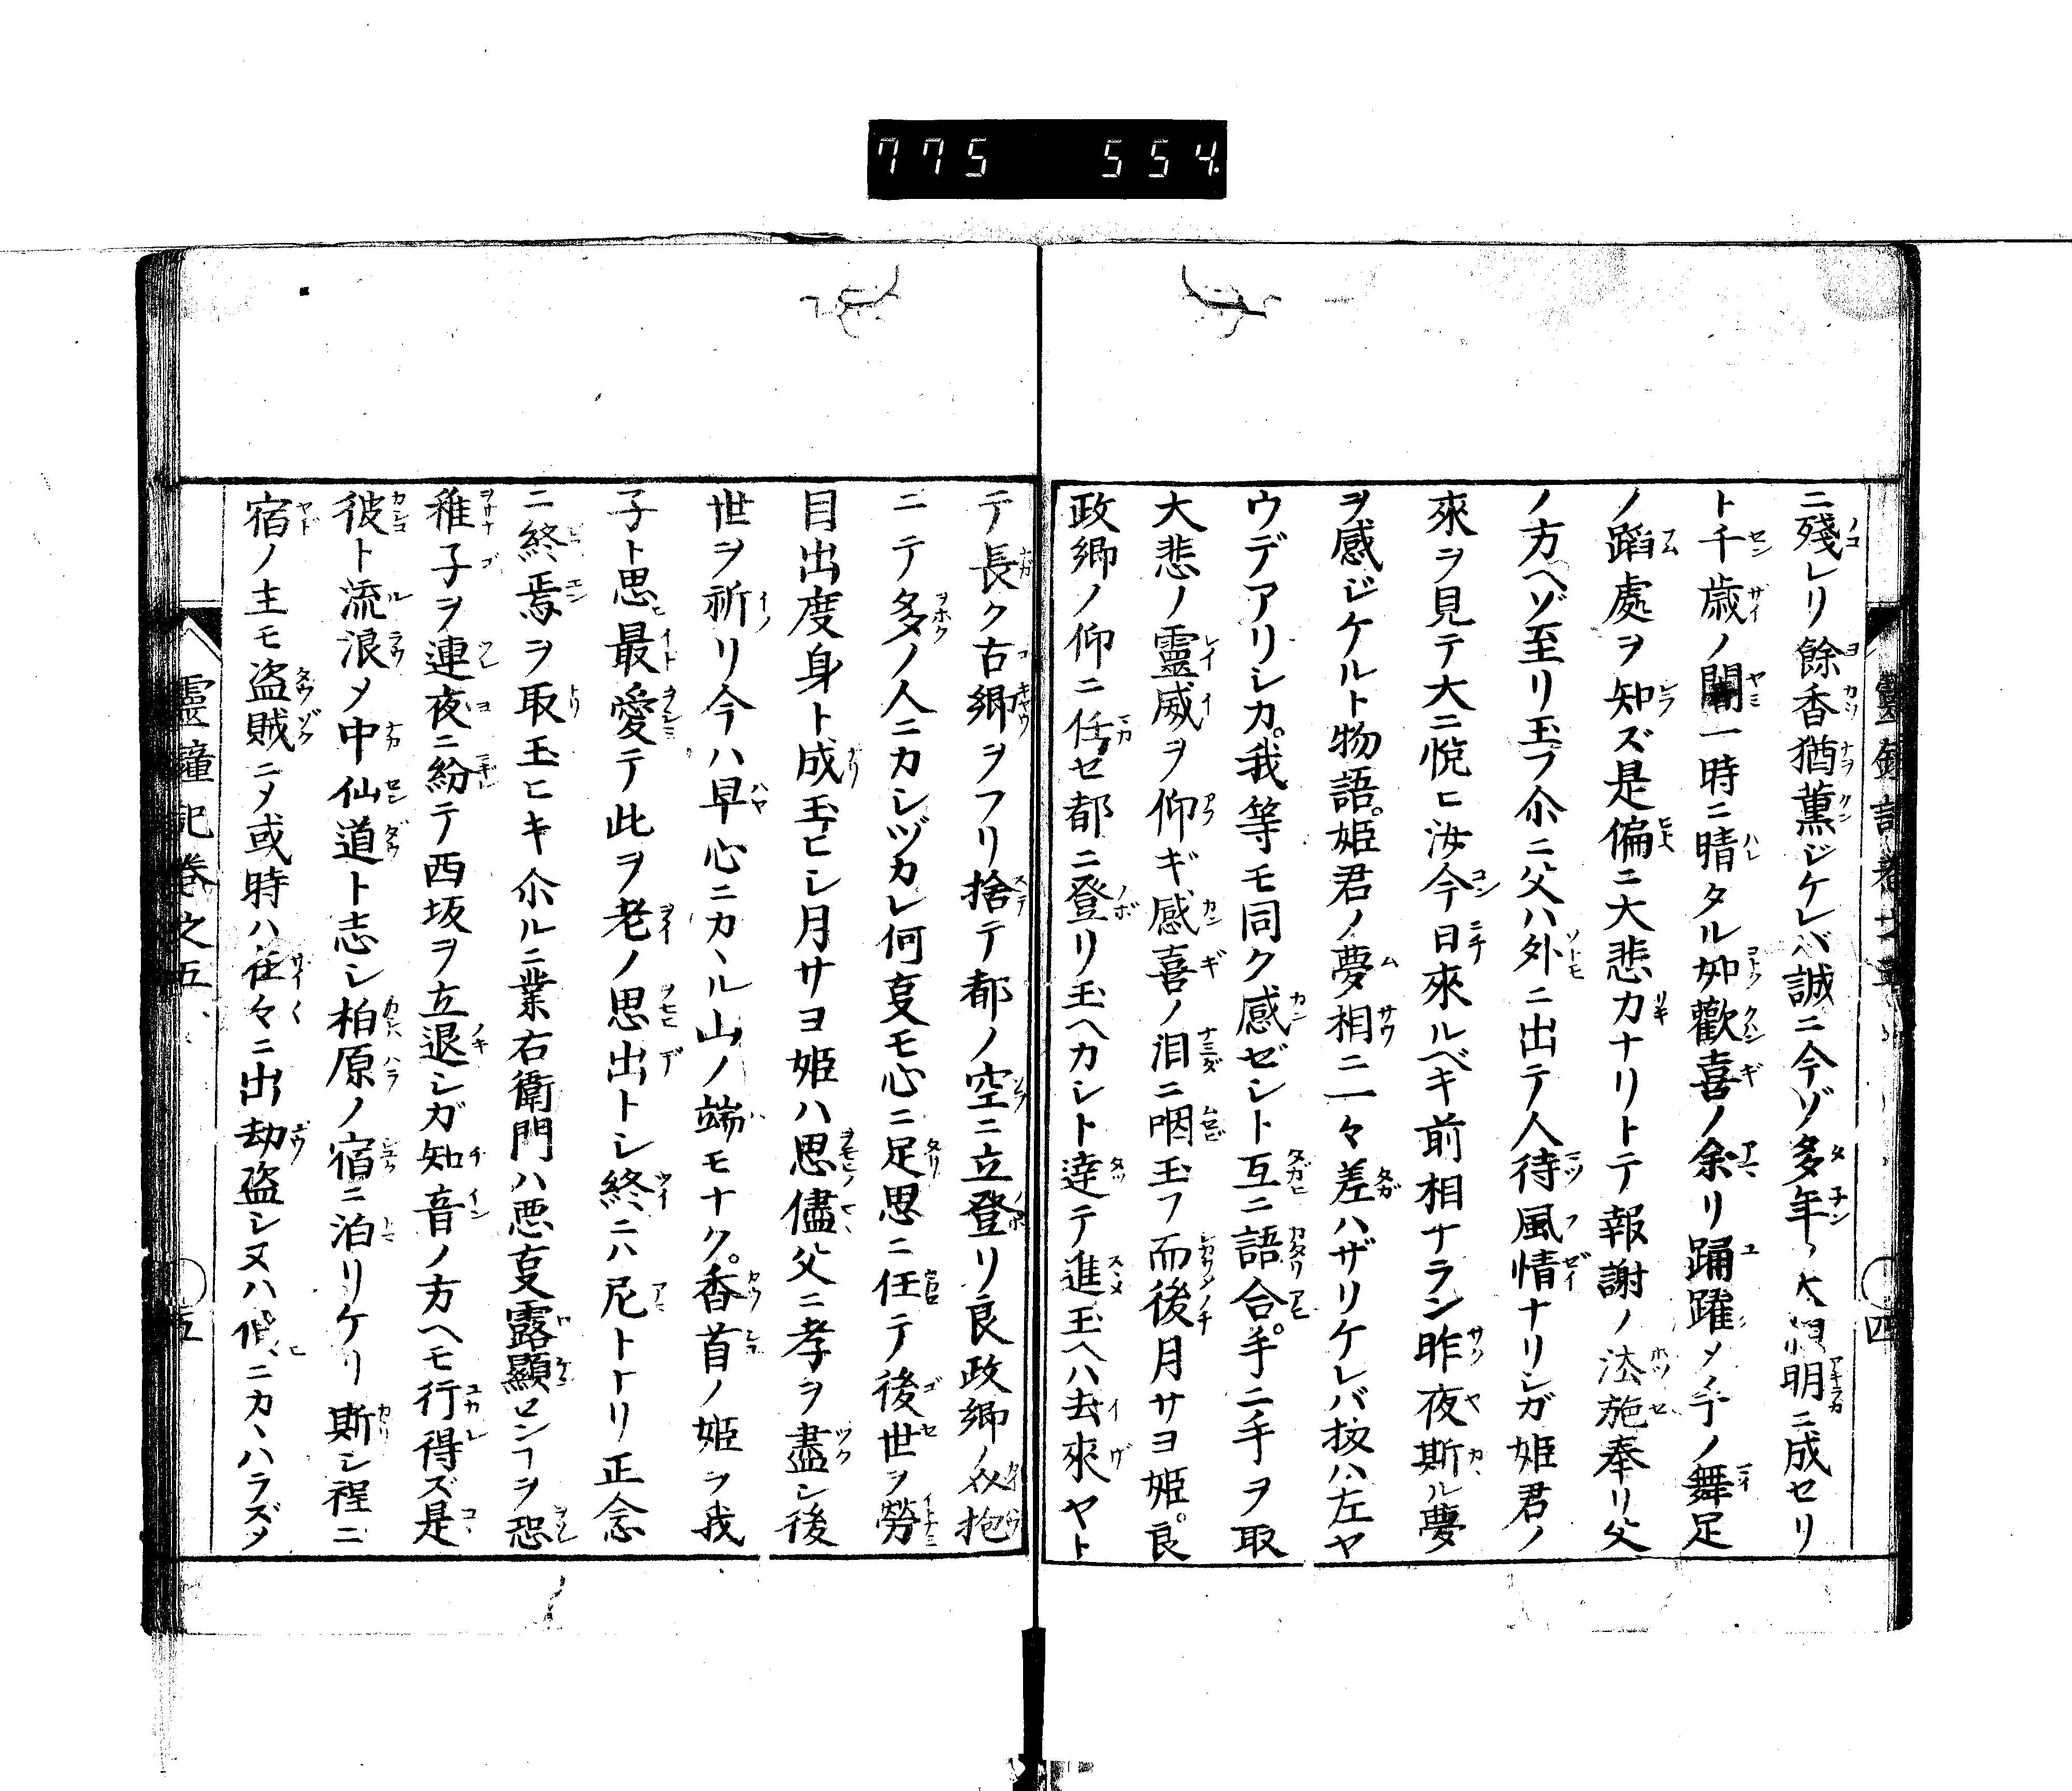 775 554
ニ殘レリ餘香猶薫ジケレバ誠ニ今ゾ多年ノ大望明ニ成セリ
ト千歳ノ闇一時ニ晴タル如歡喜ノ余リ踊躍〆手ノ舞足
ノ蹈處ヲ知ズ是偏ニ大悲力ナリトテ報謝ノ法施奉リ父
ノ方ヘゾ至リ玉フ尒ニ父ハ外ニ出テ人待風情ナリシガ姫君ノ
來ヲ見テ大ニ悦ヒ汝今日來ルベキ前相ナラン昨夜斯ル夢
ヲ感ジケルト物語。姫君ノ夢相ニ一々差ハザリケレバ扨ハ左ヤ
ウデアリシカ。我等モ同ク感ゼシト互ニ語合。手ニ手ヲ取
大悲ノ靈威ヲ仰ギ感喜ノ泪ニ咽玉フ而後月サヨ姫。良
政卿ノ仰ニ任セ都ニ登リ玉ヘカシト達テ進玉ヘハ去來ヤト
テ長ク古郷ヲフリ捨テ都ノ空ニ立登リ良政卿ノ介抱
ニテ多ノ人ニカシヅカレ何叓モ心ニ足思ニ任テ後世ヲ勞
目出度身ト成玉ヒシ月サヨ姫ハ思儘父ニ孝ヲ盡シ後
世ヲ祈リ今ハ早心ニカヽル山ノ端モナク。香首ノ姫ヲ我
子ト思最愛テ此ヲ老ノ思出トシ終ニハ尼トナリ正念
ニ終焉ヲ取玉ヒキ尒ルニ業右衛門ハ悪叓露顯センヿヲ恐
稚子ヲ連夜ニ紛テ西坂ヲ立退シガ知音ノ方ヘモ行得ズ是
彼ト流浪〆中仙道ト志シ柏原ノ宿ニ泊リケリ斯シ程ニ
宿ノ主モ盗賊ニ〆或時ハ往々ニ出劫盗シ又ハ火ニカヽハラズ〆
靈鐘記卷之五
五
四